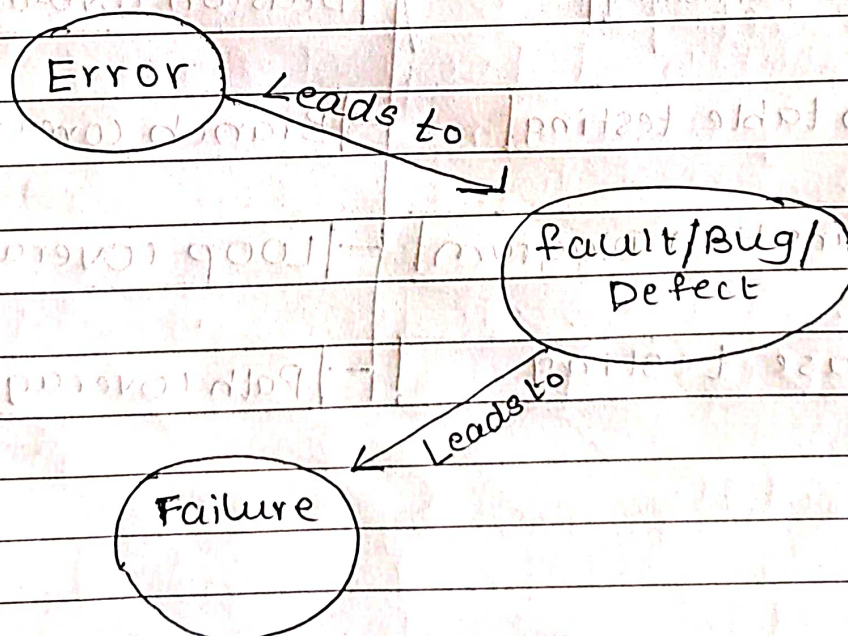 Error
Leads to
fault/Bug/
Defect
Leads to
Failure